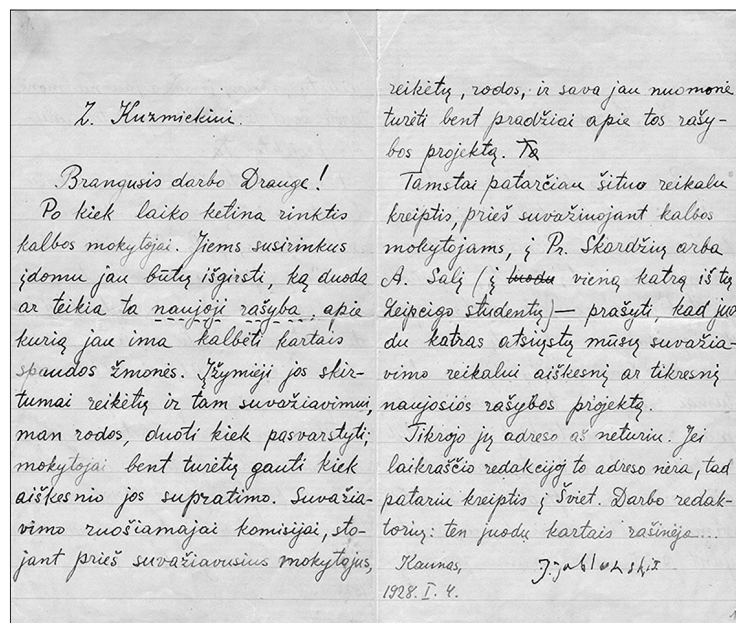 Z. Kuzmickiui.
Brangusis darbo Drauge!
Po kiek laiko ketina rinktis
kalbos mokytojai. Jiems susirinkus
įdomu jau būtų išgirsti, ką duoda
ar teikia ta naujoji rašyba, apie
kurią jau ima kalbėti kartais
spaudos žmonės. Įžymieji jos skir-
tumai reikėtų ir tam suvažiavimui,
man rodos, duoti kiek pasvarstyti;
mokytojai bent turėtų gauti kiek
aiškesnio jos supratimo. Suvažia-
vimo ruošiamajai komisijai, sto-
jant prieš suvažiavusius mokytojus,
reikėtų, rodos, ir sava jau nuomonė
turėti bent pradžiai apie tos rašy-
bos projektą. Ta
Tamstai patarčiau šituo reikalu
kreiptis, prieš suvažiuojant kalbos
mokytojams, į Pr. Skardžių arba
A. Salį (į juodu vieną katrą iš tų
Leipcigo studentų) — prašyti, kad juo
du katras atsiųstų mūsų suvažia-
vimo reikalui aiškesnį ar tikresnį
naujosios rašybos projektą.
Tikrojo jų adreso aš neturiu. Jei
laikraščio redakcijoj to adreso nėra, tad
patariu kreiptis į Šviet. Darbo redak-
torių: ten juodu kartais rašinėja...
Kaunas, J. Jablonskis
1928. I. 4.